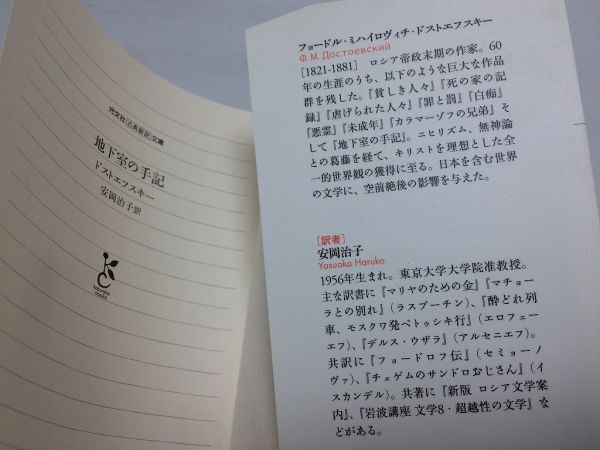 光文社古典新訳文庫
地下室の手記
ドストエフスキー
安岡治子訳
kobunsha
classics
フョードル・ミハイロヴィチ・ドストエフスキー
Ф. М. Достоевский
[1821-1881] ロシア帝政末期の作家。60
年の生涯のうち、以下のような巨大な作品
群を残した。『貧しき人々』『死の家の記
録』『虐げられた人々』『罪と罰』『白痴』
『悪霊』『未成年』『カラマーゾフの兄弟』そ
して『地下室の手記』。ニヒリズム、無神論
との葛藤を経て、キリストを理想とした全
一的世界観の獲得に至る。日本を含む世界
の文学に、空前絶後の影響を与えた。
[訳者]
安岡治子
Yasuoka Haruko
1956年生まれ。東京大学大学院准教授。
主な訳書に『マリヤのための金』『マチョー
ラとの別れ』(ラスプーチン)、『酔どれ列
車、モスクワ発ペトゥシキ行』(エロフェー
エフ)、『デルス・ウザラ』(アルセニエフ)。
共訳に『フョードロフ伝』(セミョーノ
ヴァ)、『チェゲムのサンドロおじさん』(イ
スカンデル)。共著に『新版 ロシア文学案
内』、『岩波講座 文学8・超越性の文学』な
どがある。